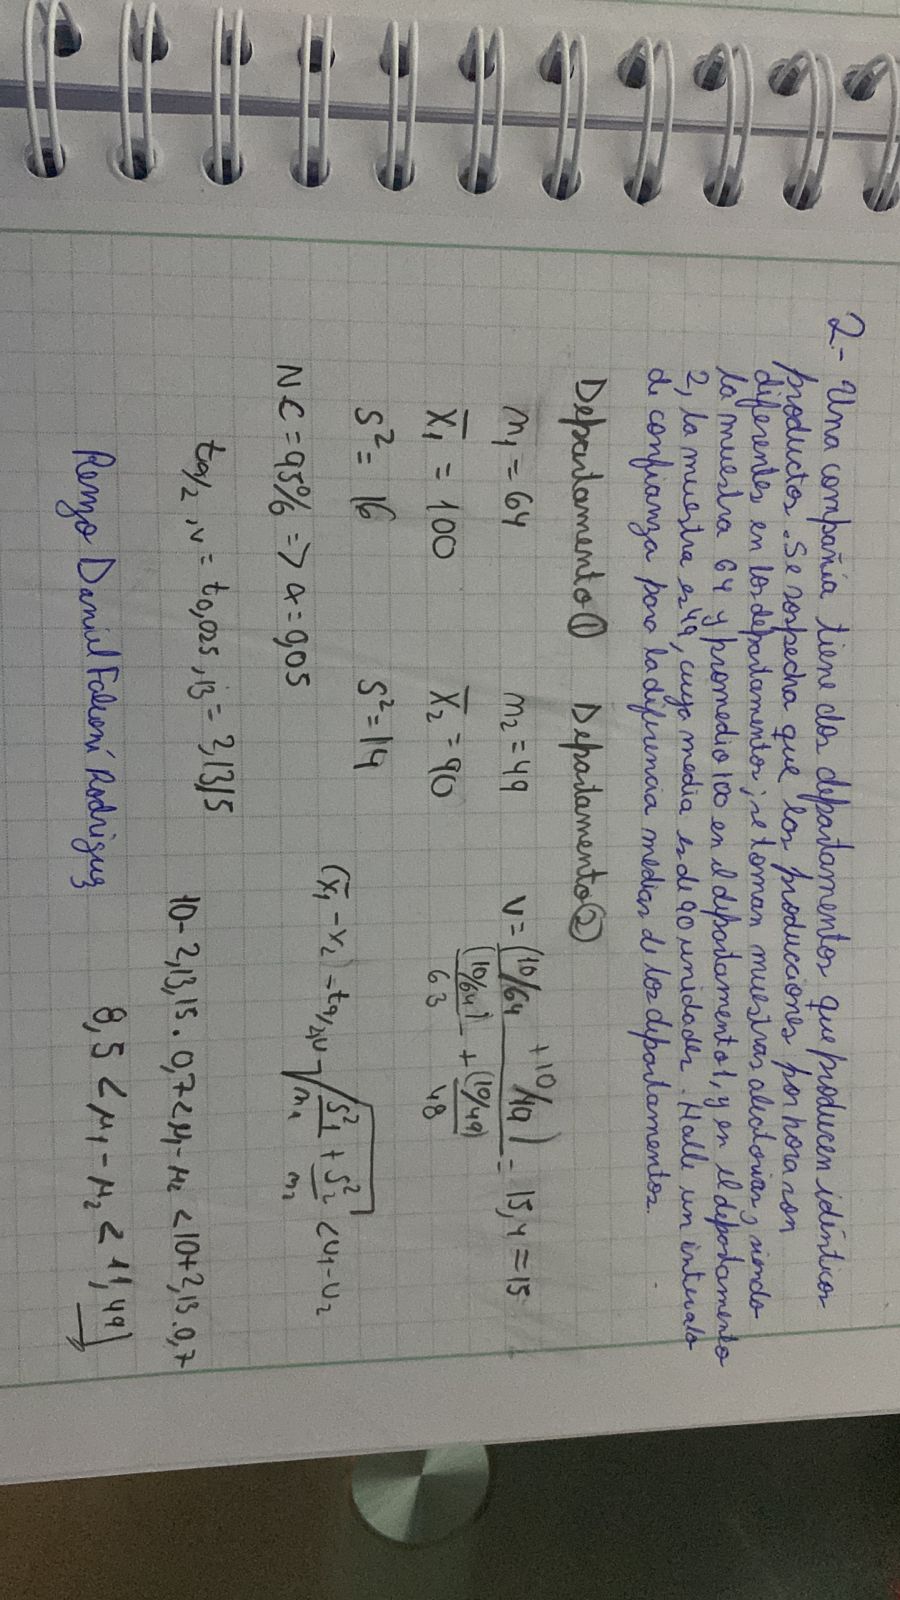 2.- Una compañia tiene dos departamentos que producen idénticos
productos. Se sospecha que los producciones por hora son
diferentes en los departamentos; se toman muestras aleatorias, siendo
la muestra 64 y promedio 100 en el departamento 1, y en el departamento
2, la muestra es 49, cuya media es de 90 unidades. Halle un intervalo
de confianza para la diferencia medias de los departamentos.
Departamento ① Departamento ②
n₁ = 64 n₂ = 49 V = (10/64 + 10/49) / ((10/64)/63 + (10/49)/48) = 15,4 ≈ 15
X̄₁ = 100 X̄₂ = 90
S² = 16 S² = 14
(x̄₁ - x₂) - tα/2,v √(S²₁/n₁ + S²₂/n₂) < μ₁ - μ₂
NC = 95% => α = 0,05
tα/2, v = t0,025, 13 = 2,1315
10 - 2,13,15 . 0,7 < μ₁ - μ₂ < 10 + 2,13 . 0,7
8,5 < μ₁ - μ₂ < 11,49
Renzo Daniel Falconí Rodriguez